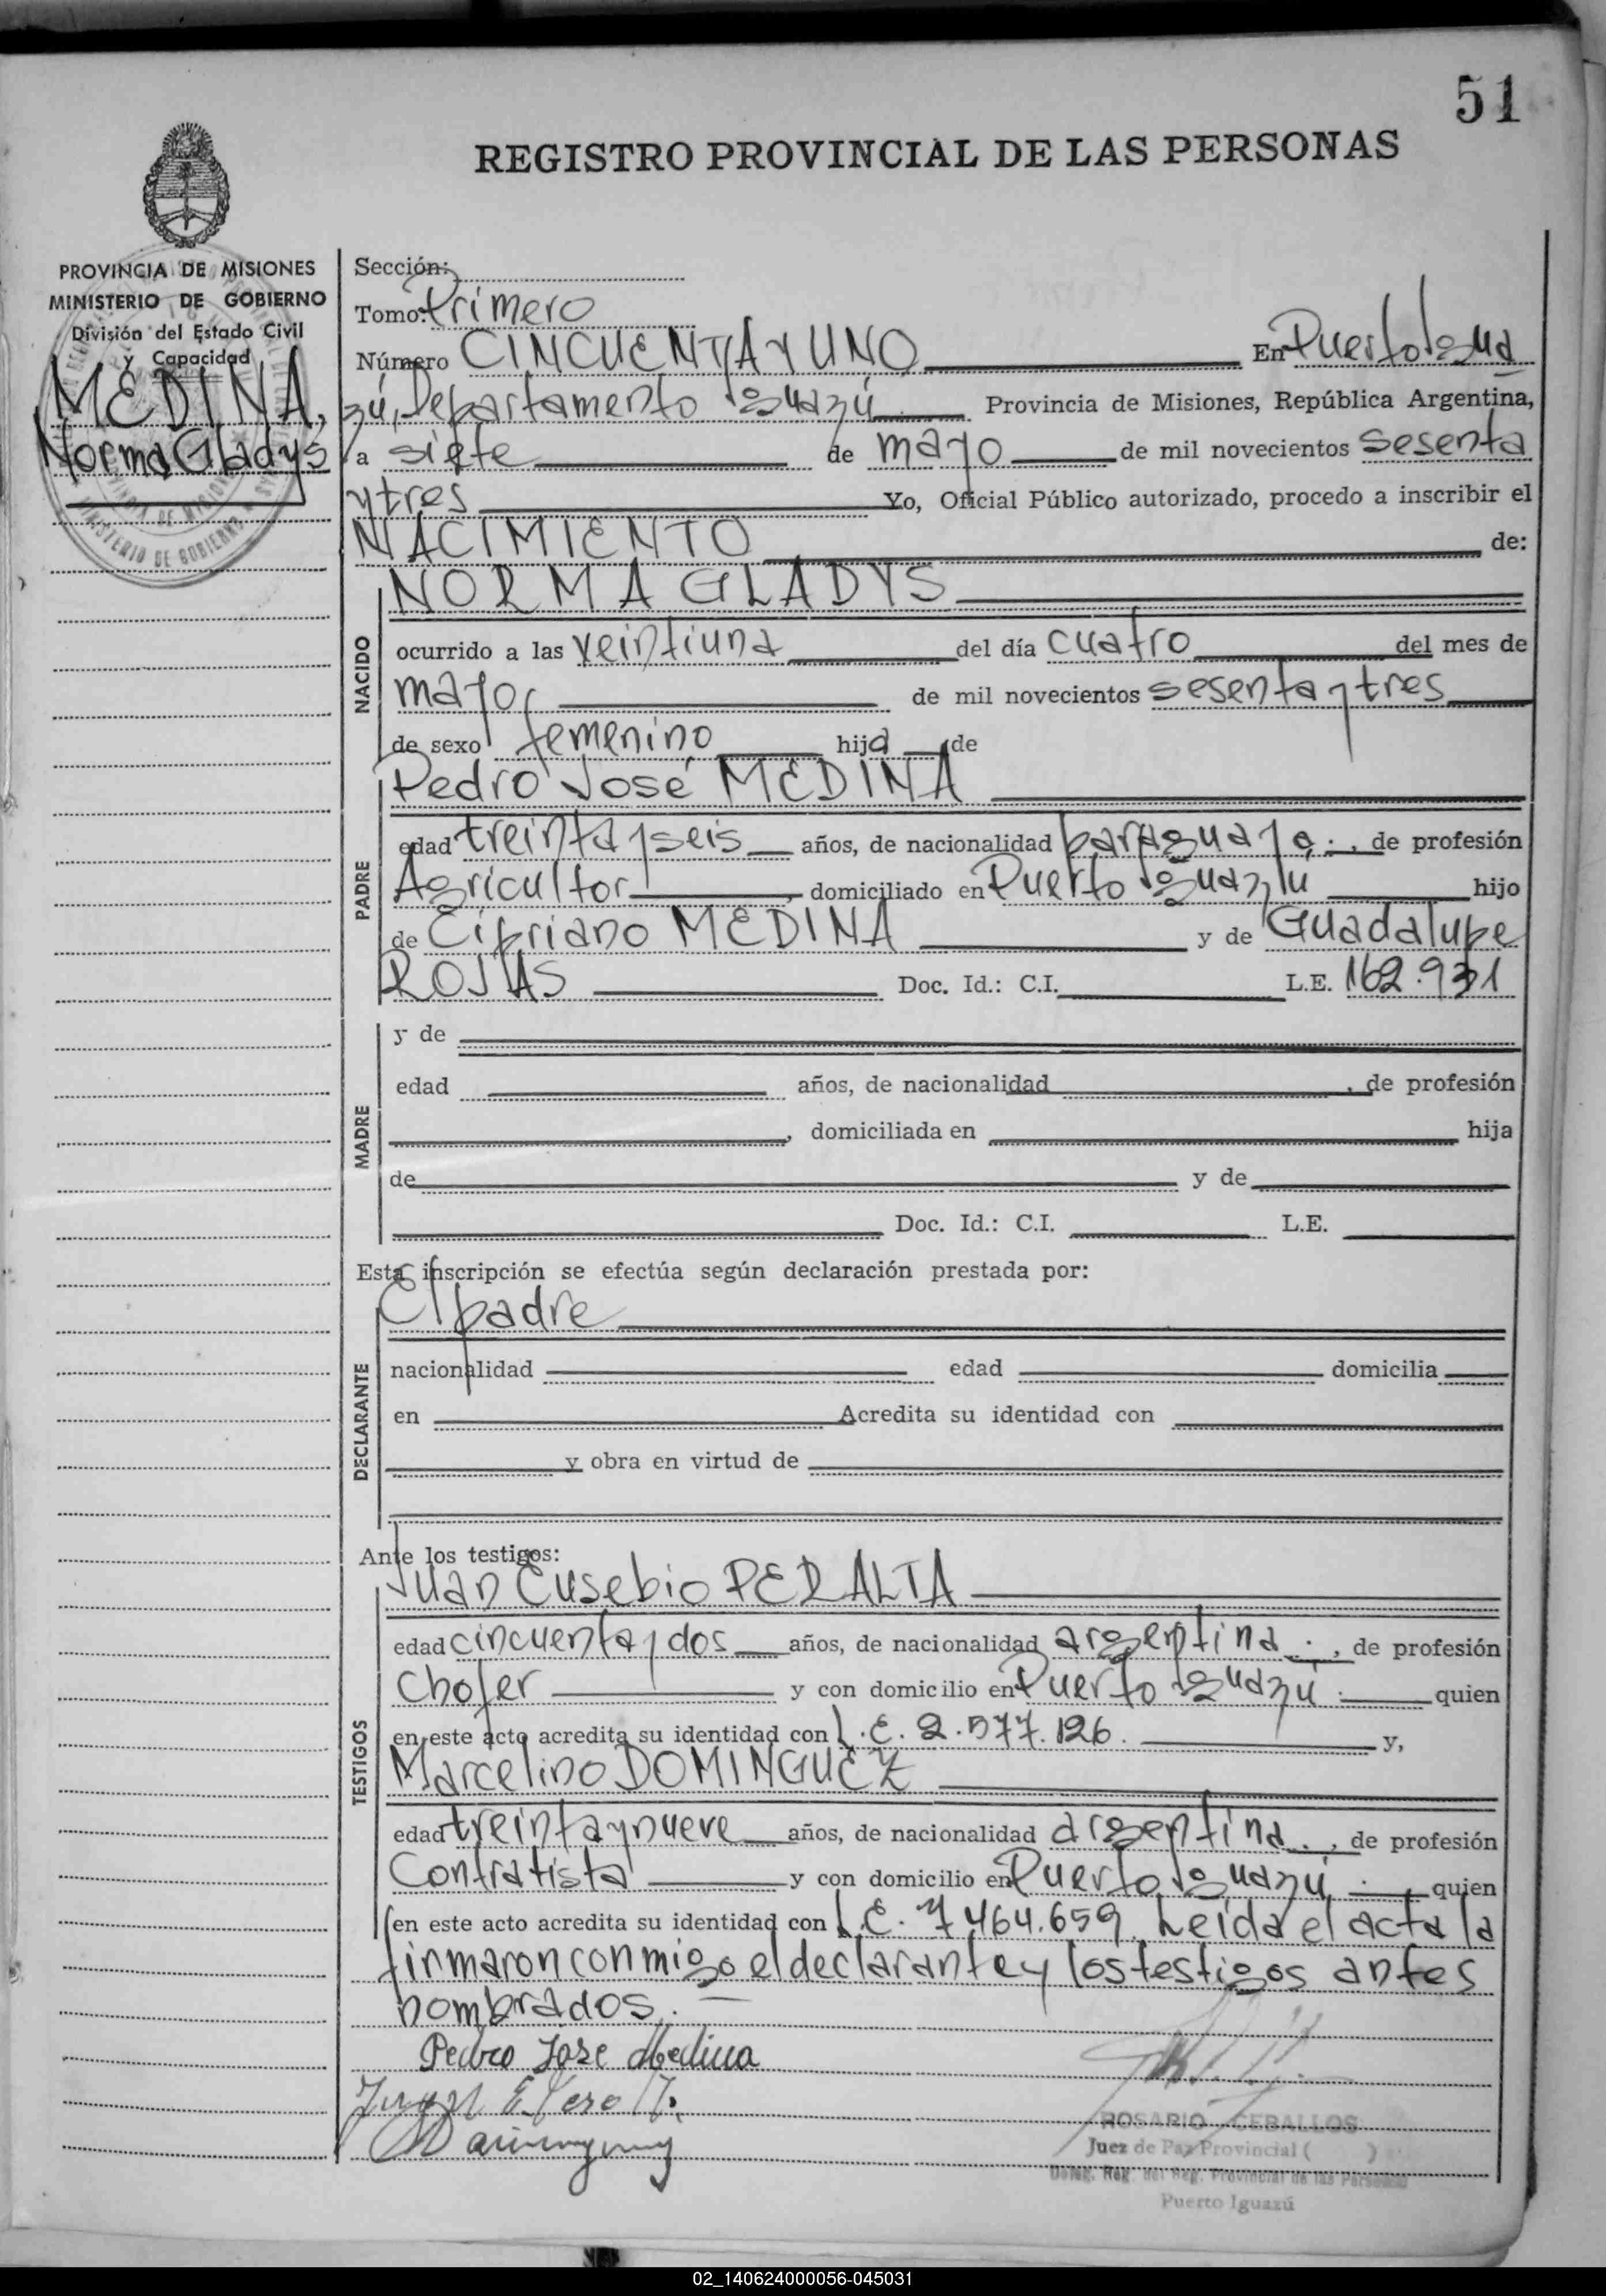 51
REGISTRO PROVINCIAL DE LAS PERSONAS
PROVINCIA DE MISIONES
MINISTERIO DE GOBIERNO
División del Estado Civil
y Capacidad
MEDINA,
Norma Gladys
Sección:
Tomo: Primero
Número CINCUENTA Y UNO En Puerto Igua
zú, Departamento Iguazú Provincia de Misiones, República Argentina,
a siete de mayo de mil novecientos sesenta
y tres Yo, Oficial Público autorizado, procedo a inscribir el
NACIMIENTO de:
NACIDO
NORMA GLADYS
ocurrido a las veintiuna del día cuatro del mes de
mayo de mil novecientos sesenta y tres
de sexo femenino hija de
PADRE
Pedro José MEDINA
edad treinta y seis años, de nacionalidad paraguaya., de profesión
Agricultor, domiciliado en Puerto Iguazú hijo
de Cipriano MEDINA y de Guadalupe
ROJAS Doc. Id.: C.I. L.E. 162.931
MADRE
y de
edad años, de nacionalidad, de profesión
, domiciliada en hija
de y de
Doc. Id.: C.I. L.E.
Esta inscripción se efectúa según declaración prestada por:
DECLARANTE
El padre
nacionalidad edad domicilia
en Acredita su identidad con
y obra en virtud de
Ante los testigos:
TESTIGOS
Juan Eusebio PERALTA
edad cincuenta y dos años, de nacionalidad argentina., de profesión
Chofer y con domicilio en Puerto Iguazú. quien
en este acto acredita su identidad con L.E. 2.577.126. y,
Marcelino DOMINGUEZ
edad treinta y nueve años, de nacionalidad argentina., de profesión
Contratista y con domicilio en Puerto Iguazú., quien
en este acto acredita su identidad con L.E. 7.464.659. Leida el acta la
firmaron conmigo el declarante y los testigos antes
nombrados.
Pedro Jose Medina
ROSARIO CEBALLOS
Juez de Paz Provincial ( )
Deleg. Reg. del Reg. Provincial de las Personas
Puerto Iguazú
02_140624000056-045031